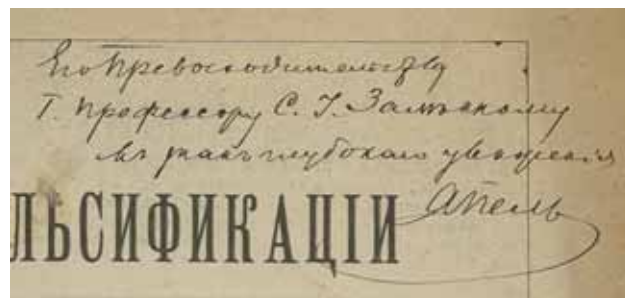 Его Превосходительству
Г. Профессору С. І. Залѣскому
въ знакъ глубокаго уваженія
АПель
ЛЬСИФИКАЦІИ